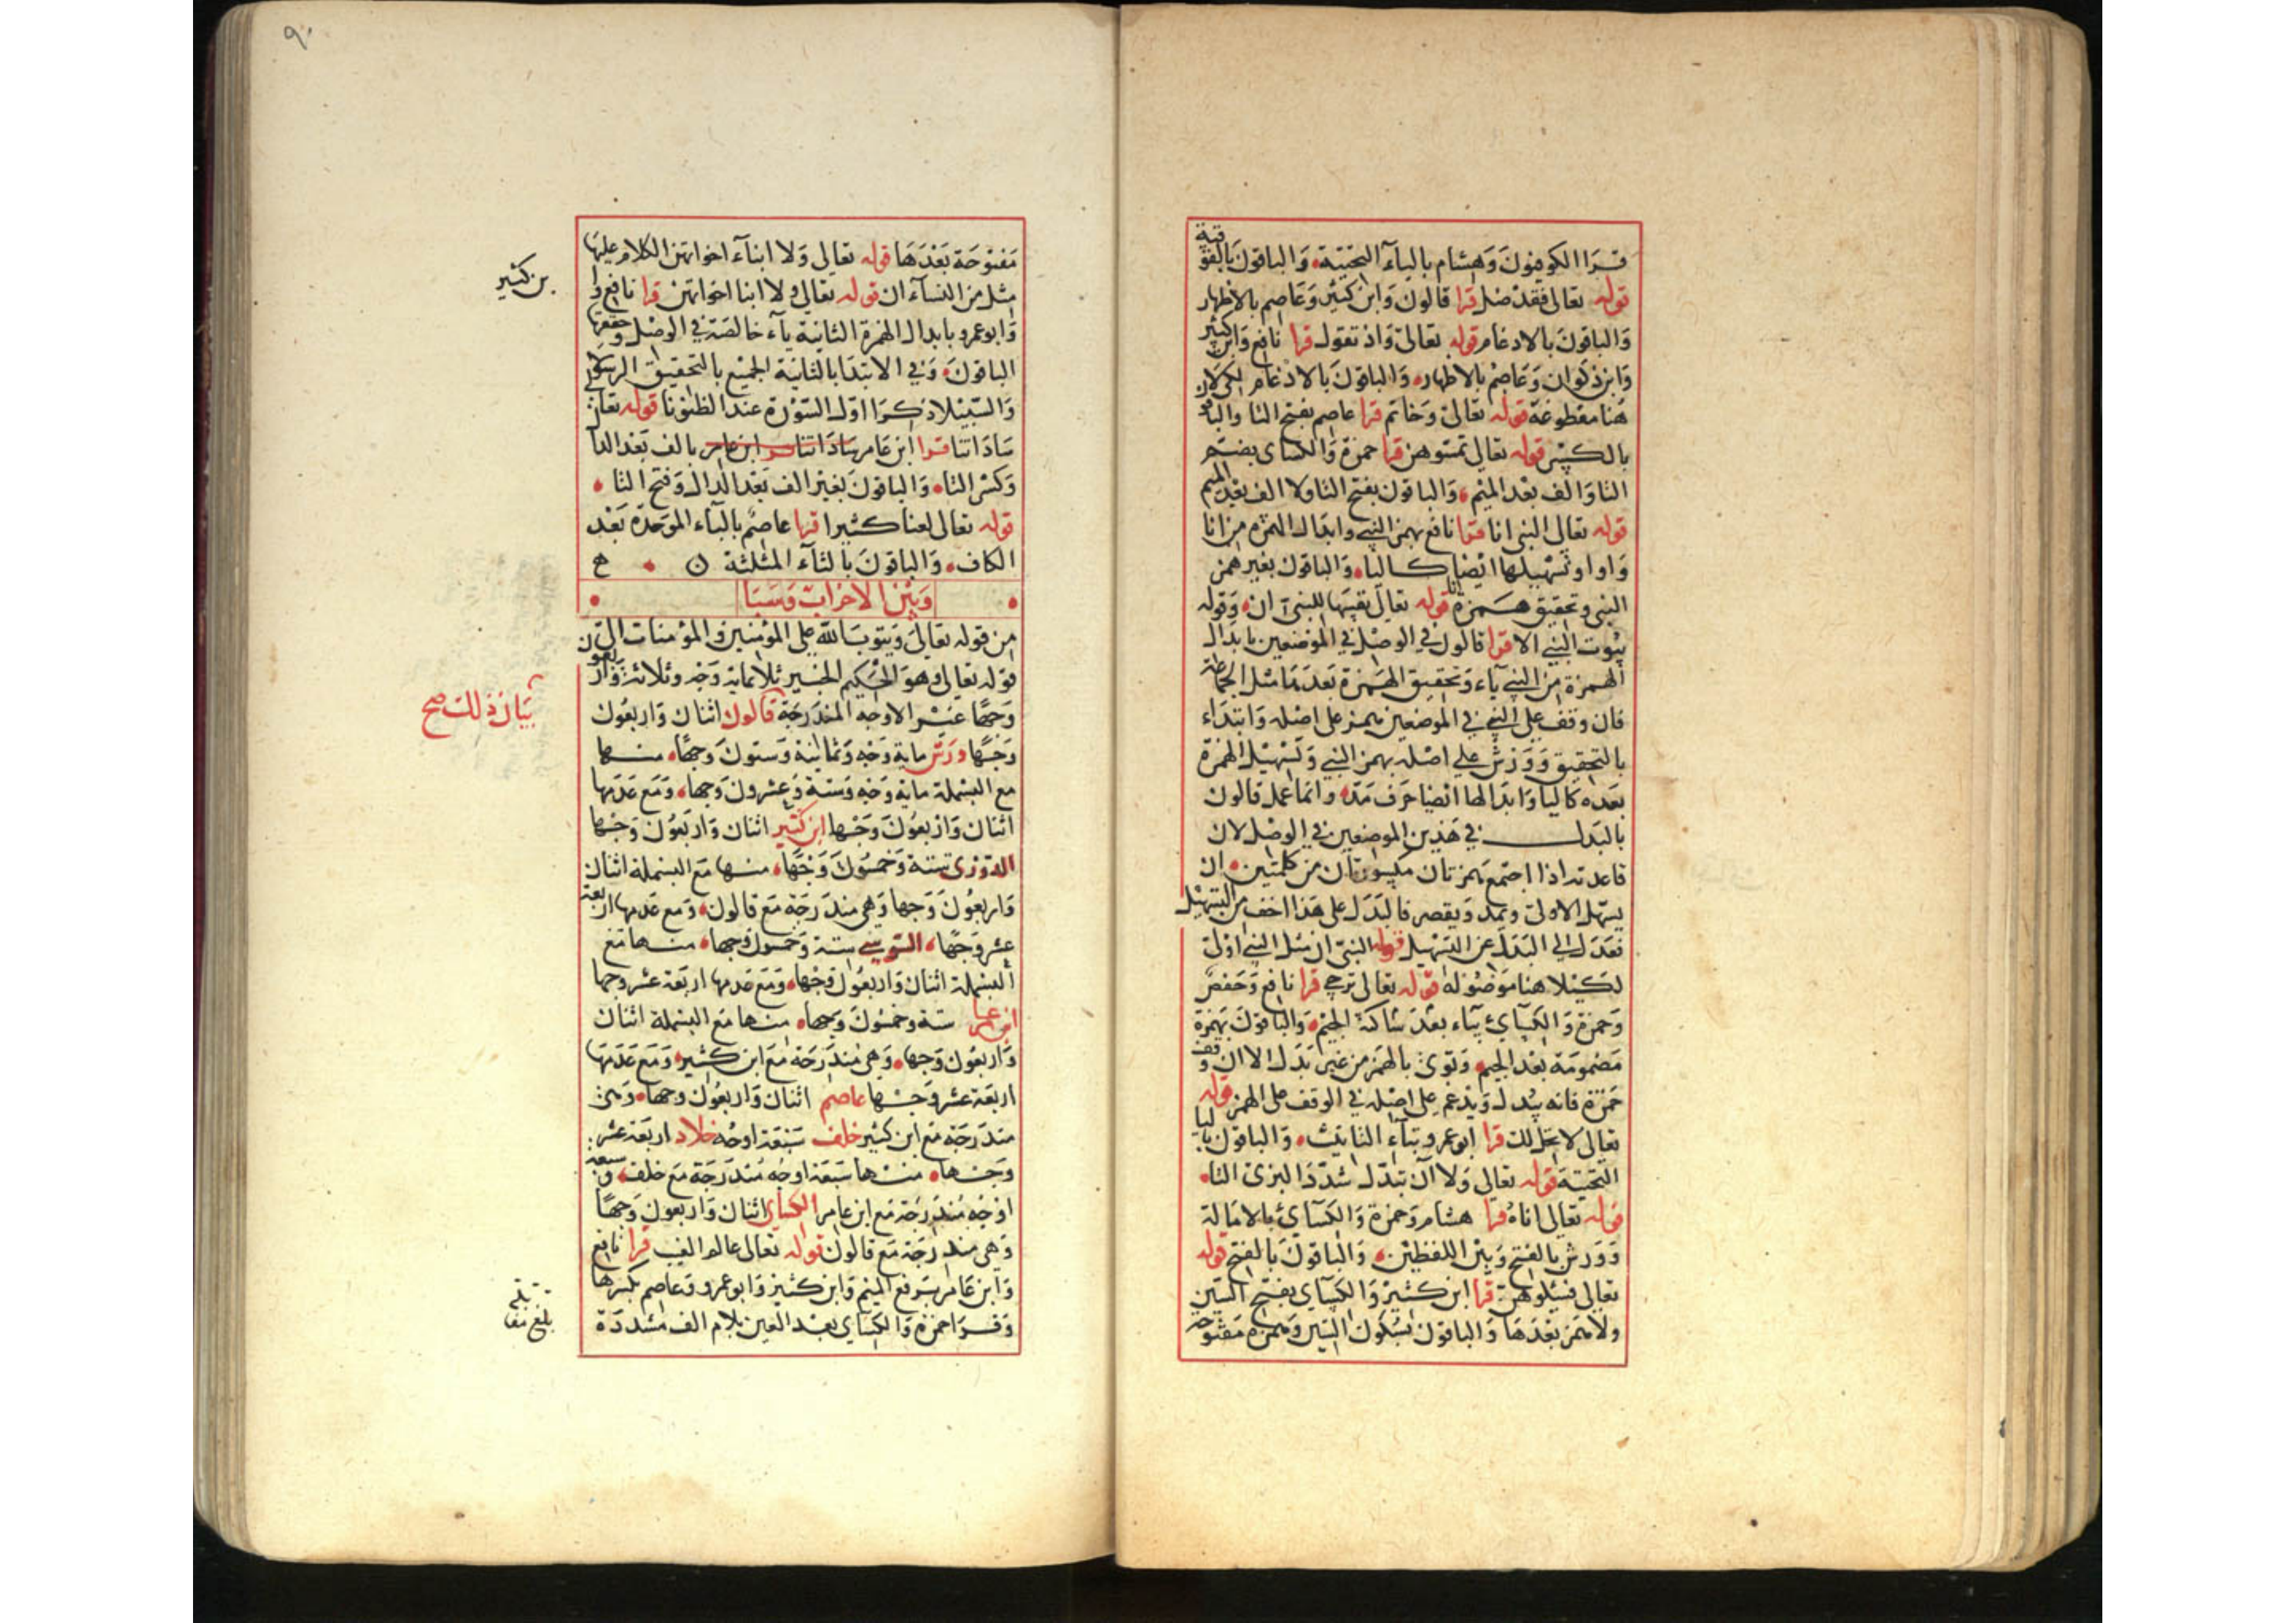 قرا الكوفيون وهشام باليآء التحتية والباقون بالفوقية
قوله تعالى فقد ضل قرا قالون وابن كثير وعاصم بالاظهار
والباقون بالادغام قوله تعالى واذ تقول قرا نافع وابن كثير
وابن ذكوان وعاصم بالاظهار والباقون بالادغام لكي لا
هنا مقطوعة قوله تعالى وخاتم قرا عاصم بفتح التا والباقو
بالكسر قوله تعالى تمسوهن قرا حمزة والكساى بضم
التا والف بعد الميم والباقون بفتح التا ولا الف بعد الميم
قوله تعالى النبى انا قرا نافع بهمز النبي وابدال الهمزه من انا
واوا وتسهيلها ايضا كاليا والباقون بغير همز
النبى وتحقيق همزة انا قوله تعالى للنبى ان وقوله
بيوت النبي الا قرا قالون في الوصل في الموضعين بابدال
الهمزة من النبي يآء وتحقيق الهمزة بعدها مثل الجماعة
فان وقف على النبي في الموضعين بهمز على اصله وابتداء
بالتحقيق وورش على اصله بهمز النبي وتسهيل الهمزة
بعده كاليا وابدالها ايضا حرف مد وانما عمل قالون
بالبدل في هذين الموضعين في الوصل لان
قاعدته اذا اجتمع همزتان مكسورتان من كلمتين ان
يسهل الاولى ويمد ويقصر فالبدل على هذا اخف من التسهيل
فعدل الى البدل عن التسهيل قوله النبى ان مثل النبي اولى
لكيلا هنا موصوله قوله تعالى ترجي قرا نافع وحفص
وحمزة والكسآي بيآء بعد ساكنة الجيم والباقون بهمزة
مضمومة بعد الجيم وتووى بالهمز من غير بدل الا ان وقف
حمزة فانه يبدل ويدغم على اصله في الوقف على الهمز قوله
تعالى لا يحل لك قرا ابو عمرو بتآء التانيث والباقون باليا
التحتية قوله تعالى ولا ان تبدل شدد البزى التا
قوله تعالى اناه قرا هشام وحمزة والكسآي بالامالة
وورش بالفتح وبين اللفظين والباقون بالفتح قوله
تعالى فسئلوهن قرا ابن كثير والكسآي بفتح السين
ولا همز بعدها والباقون بسكون السين وهمزة مفتوحة
٩٠
مفتوحة بعدها قوله تعالى ولا ابنآء اخواتهن الكلام عليها
مثل من النسآء ان قوله تعالى ولا ابنا اخواتهن قرا نافع وا
بن كثير
وابو عمرو بابدال الهمزة الثانية يآء خالصة في الوصل وحققها
الباقون وفي الابتدا بالثانية الجميع بالتحقيق الرسولا
والسبيلا ذكرا اول السورة عند الظنونا قوله تعالى
ساداتنا قرا ابن عامر ساداتنا قرا ابن عامر بالف بعد الدا
وكسر التا والباقون بغير الف بعد الدال وفتح التا
قوله تعالى لعنا كثيرا قرا عاصم بالبآء الموحدة بعد
الكاف والباقون بالثآء المثلثة
وبين الاحزاب وسبا
من قوله تعالى ويتوب الله على المؤمنين والمؤمنات الى
قوله تعالى وهو الحكيم الخبير ثلاثماية وجه وثلاثة واربعون
وجها غير الاوجه المندرجة قالون اثنان واربعون
بيان ذلك صح
وجها ورش ماية وجه وثمانية وستون وجها منها
مع البسملة ماية وجه وستة وعشرون وجها ومع عدمها
اثنان واربعون وجها ابن كثير اثنان واربعون وجها
الدورى ستة وخمسون وجها منها مع البسملة اثنان
واربعون وجها وهي مندرجة مع قالون ومع عدمها اربعة
عشر وجها السوسي ستة وخمسون وجها منها مع
البسملة اثنان واربعون وجها ومع عدمها اربعة عشر وجها
ابن عامر ستة وخمسون وجها منها مع البسملة اثنان
واربعون وجها وهي مندرجة مع ابن كثير ومع عدمها
اربعة عشر وجها عاصم اثنان واربعون وجها وهي
مندرجة مع ابن كثير خلف سبعة اوجه خلاد اربعة عشر
وجها منها سبعة اوجه مندرجة مع خلف وسبعة
اوجه مندرجة مع ابن عامر الكساي اثنان واربعون وجها
وهي مندرجة مع قالون قوله تعالى عالم الغيب قرا نافع
وابن عامر برفع الميم وابن كثير وابو عمرو وعاصم بكسرها
وقرا حمزة والكسآي بعد العين بلام الف مشددة
بلغ مقا